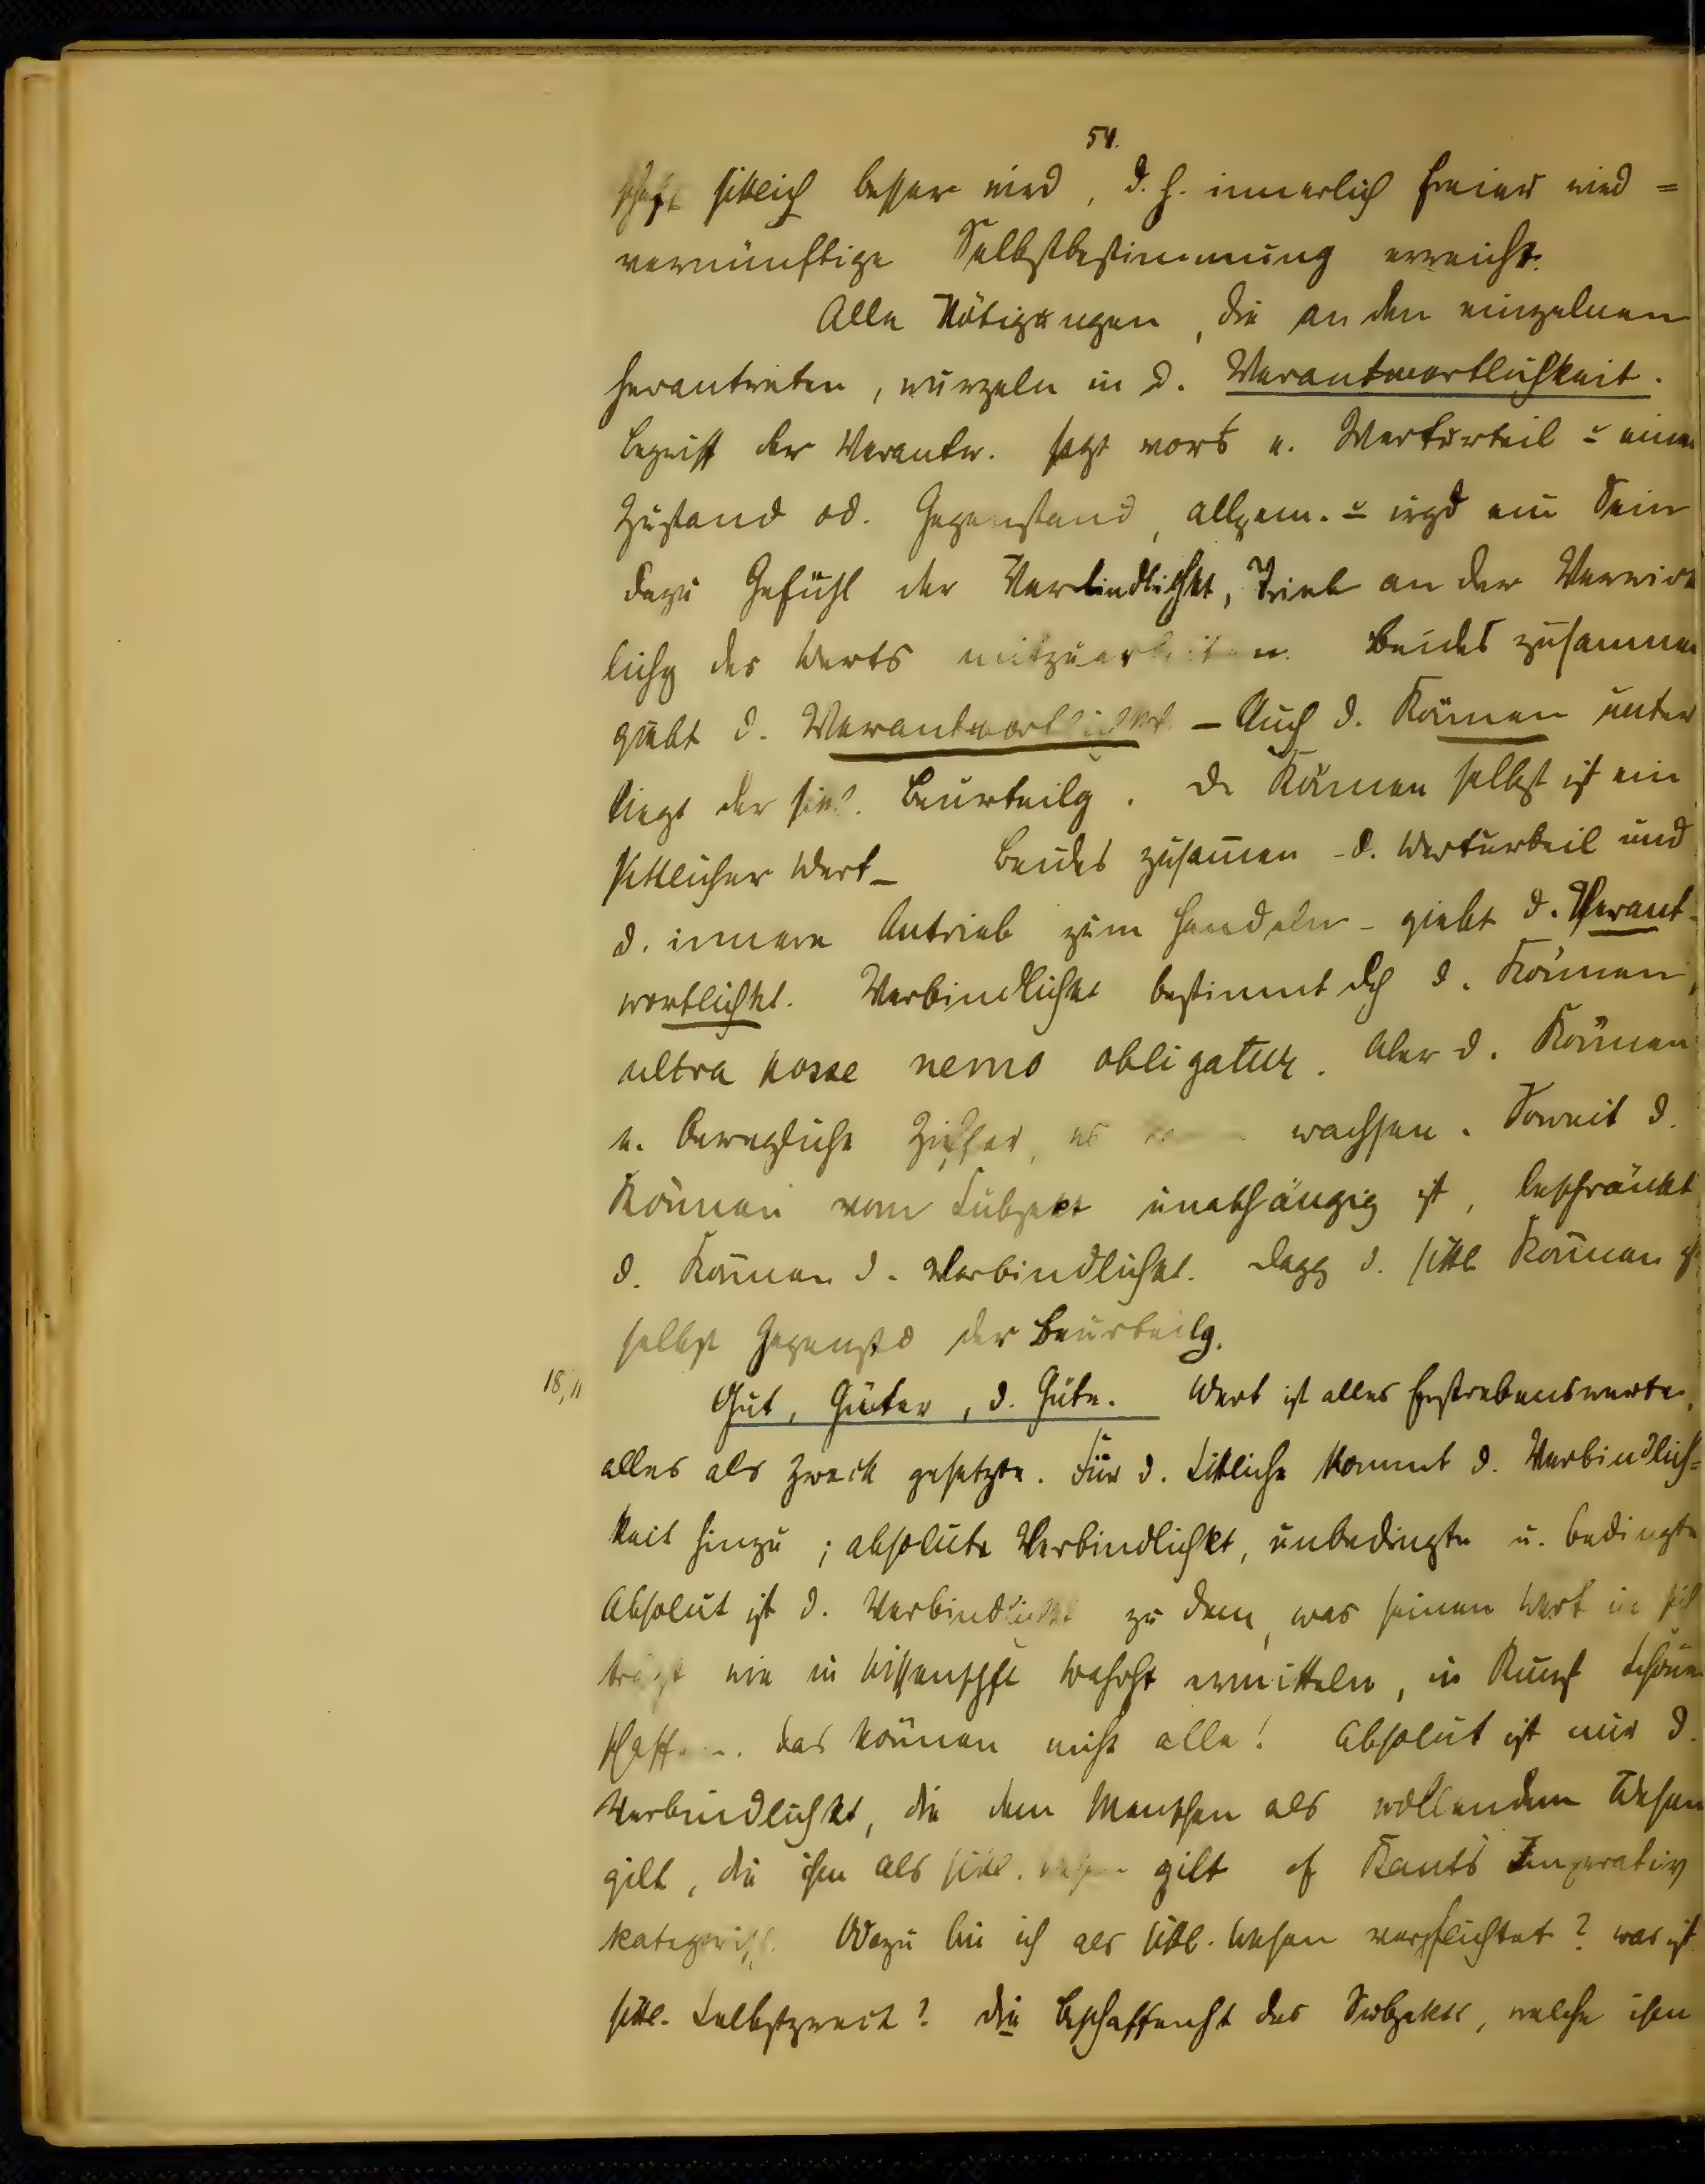 54.
schaft sittlich besser wird, d. h. innerlich freier wird =
vernünftige Selbstbestimmung erreicht.
Alle Nötigungen, die an den einzelnen
herantreten, wurzeln in d. Verantwortlichkeit.
Begriff der Verantw. setzt voraus e. Werturteil ü einen
Zustand od. Gegenstand, allgem. ü irgd ein Sein
dazu Gefühl der Verbindlichkt, Trieb an der Verwirk
lichg des Werts mitzuarbeiten. Beides zusammen
giebt d. Verantwortlichkt. – Auch d. Können unter
liegt der sittl. Beurteilg. Das Können selbst ist ein
sittlicher Wert – Beides zusammen – d. Werturteil und
d. innere Antrieb zum Handeln – giebt d. Verant-
wortlichkt. Verbindlichkt bestimmt dch d. Können,
ultra posse nemo obligatur. Aber d. Können
e. bewegliche Ziffer, es kann wachsen. Soweit d.
Können vom Subjekt unabhängig ist, beschränkt
d. Können d. Verbindlichkt. Dagg d. sittl Können ist
selbst Gegenstd der Beurteilg.
18,11 Gut, Güter, d. Gute. Wert ist alles Erstrebenswerte,
alles als Zweck gesetzte. Für d. Sittliche kommt d. Verbindlich=
keit hinzu; absolute Verbindlichkt, unbedingte u. bedingte
Absolut ist d. Verbindlichkt zu dem, was seinen Wert in sich
trägt wie in Wissenschft Wahrht ermitteln, in Kunst Schöne
schaffen. Das können nicht alle! Absolut ist nur d.
Verbindlichkt, die dem Menschen als wollendem Wesen
gilt, die ihm als sittl. Wesen gilt cf Kants Imperativ
kategorisch. Wozu bin ich als sittl. Wesen verpflichtet? was ist
sittl. Selbstzweck? Die Beschaffenht des Subjekts, welche ihm